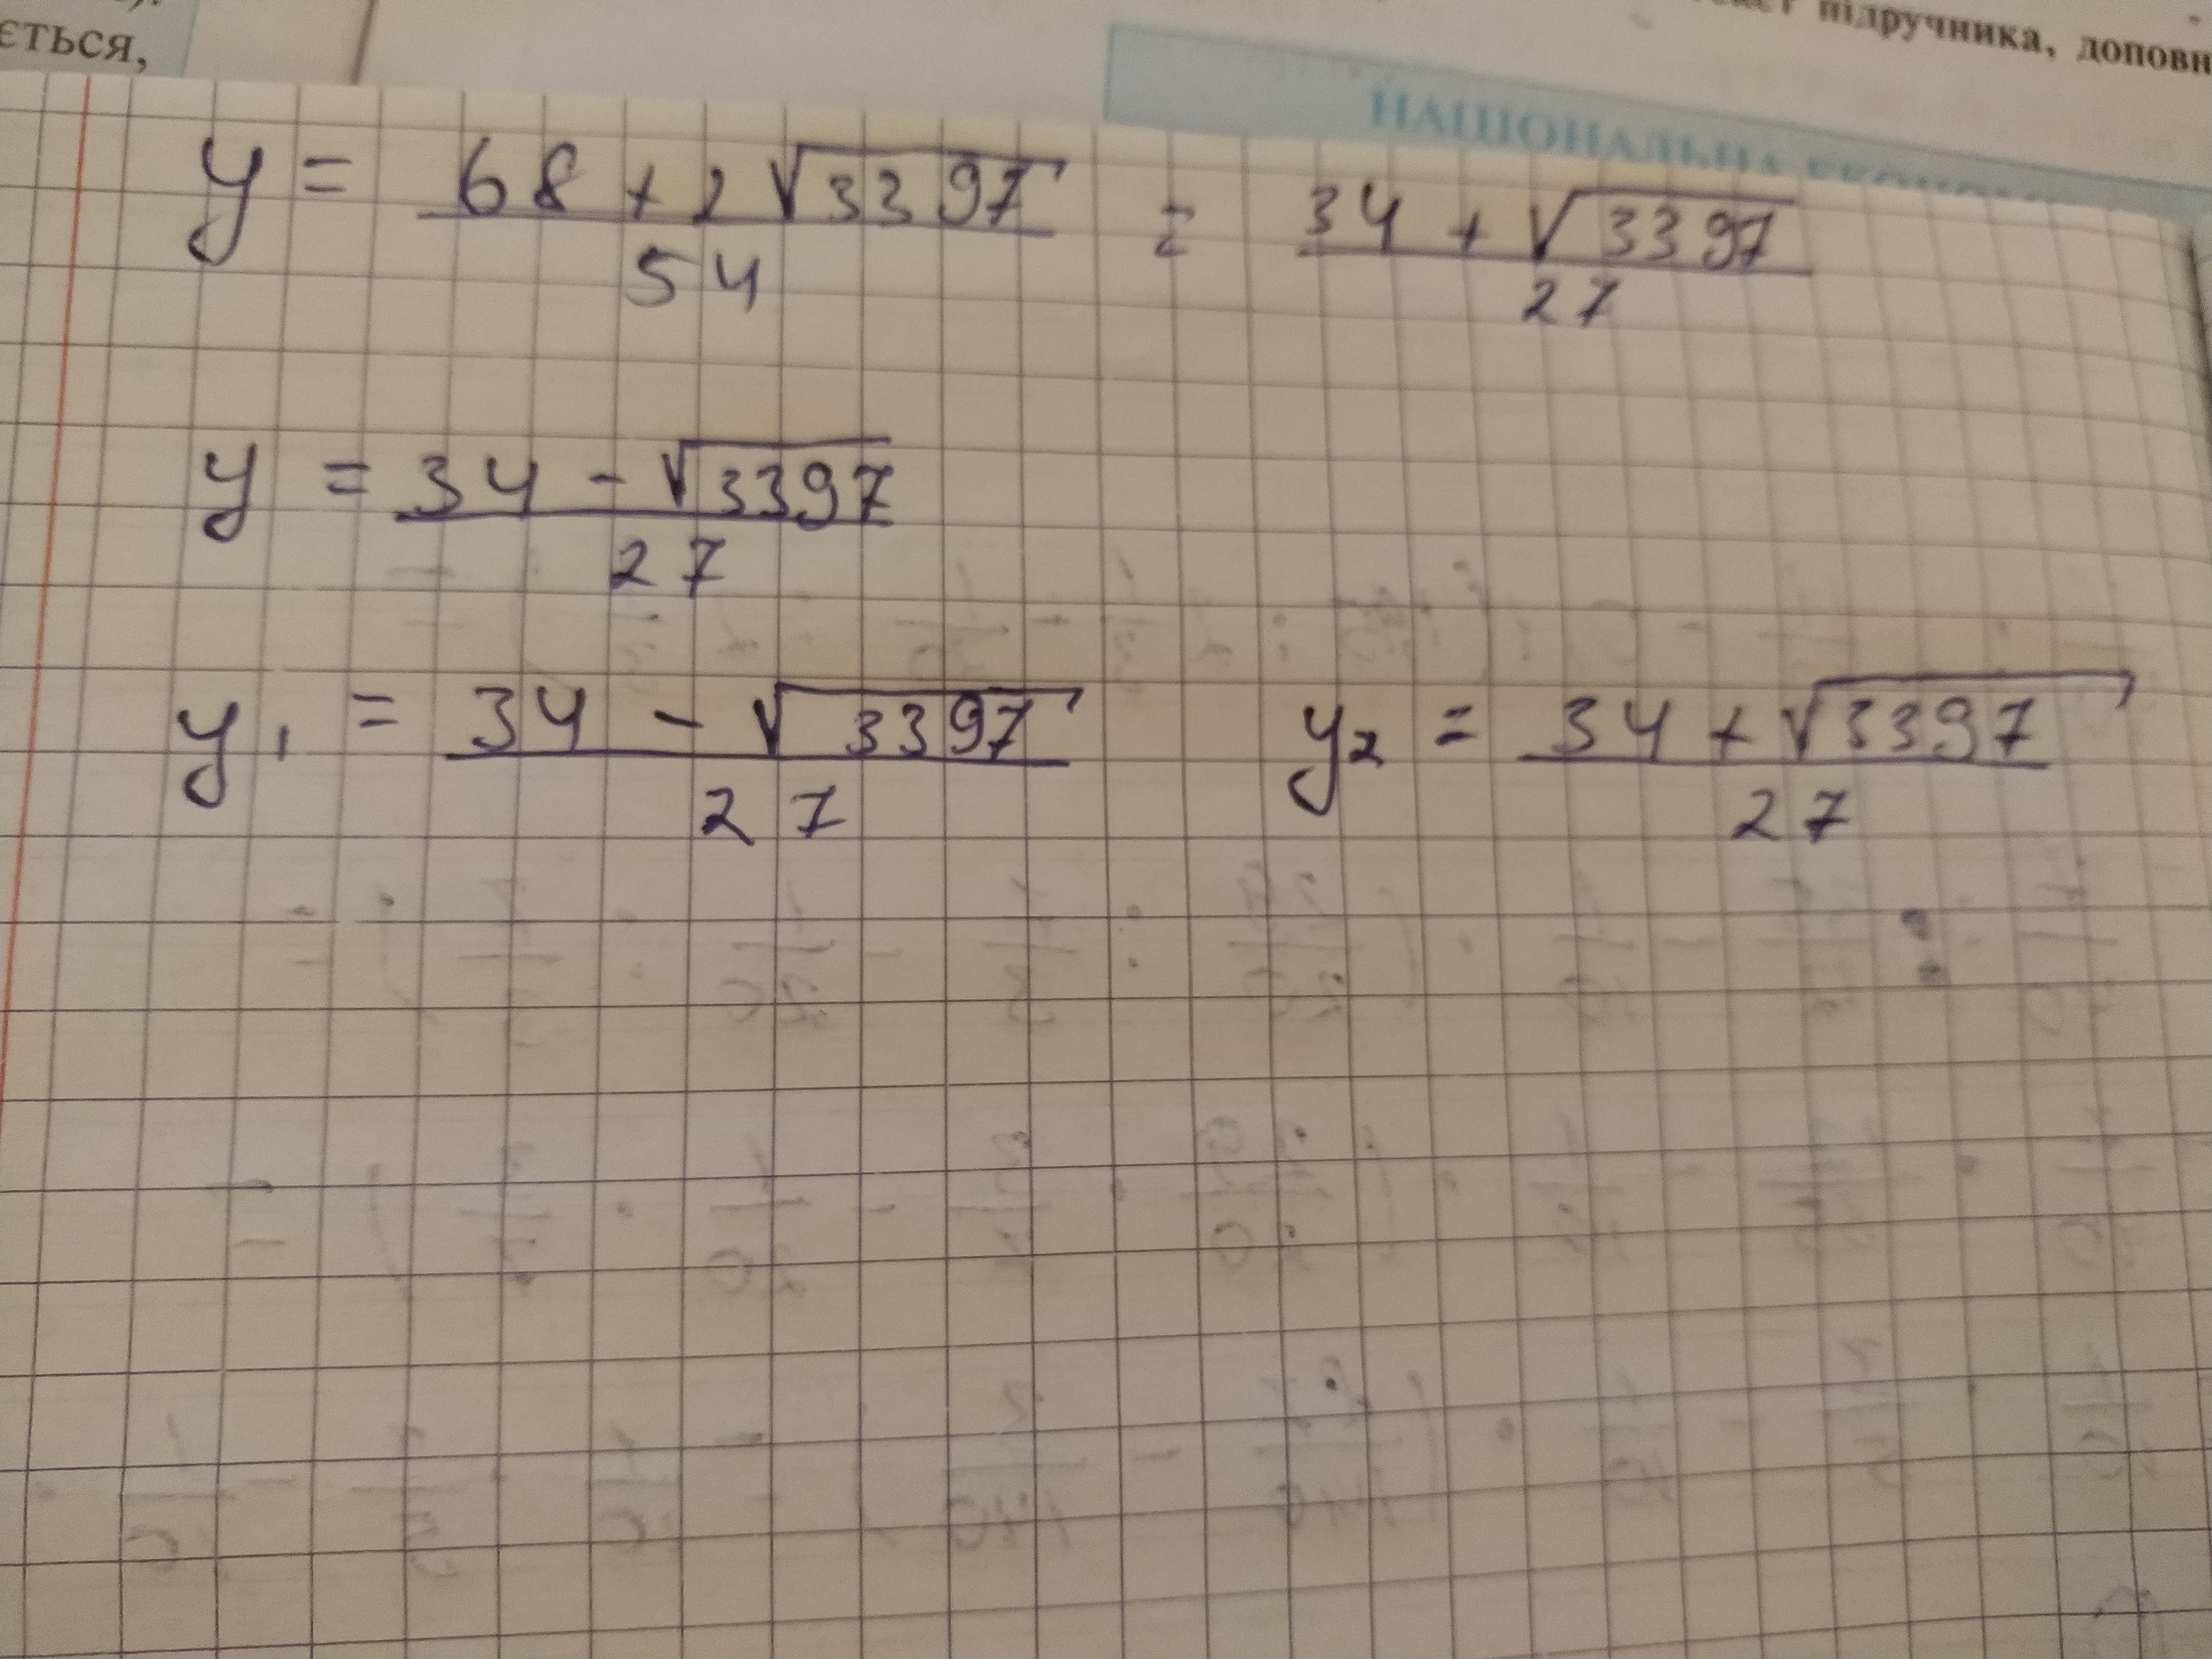 ється,
підручника, доповн
НАЦІОНАЛЬНА ЕКОНОМ
y = (68 + 2√3397)/54 = (34 + √3397)/27
y = (34 - √3397)/27
y₁ = (34 - √3397)/27 y₂ = (34 + √3397)/27